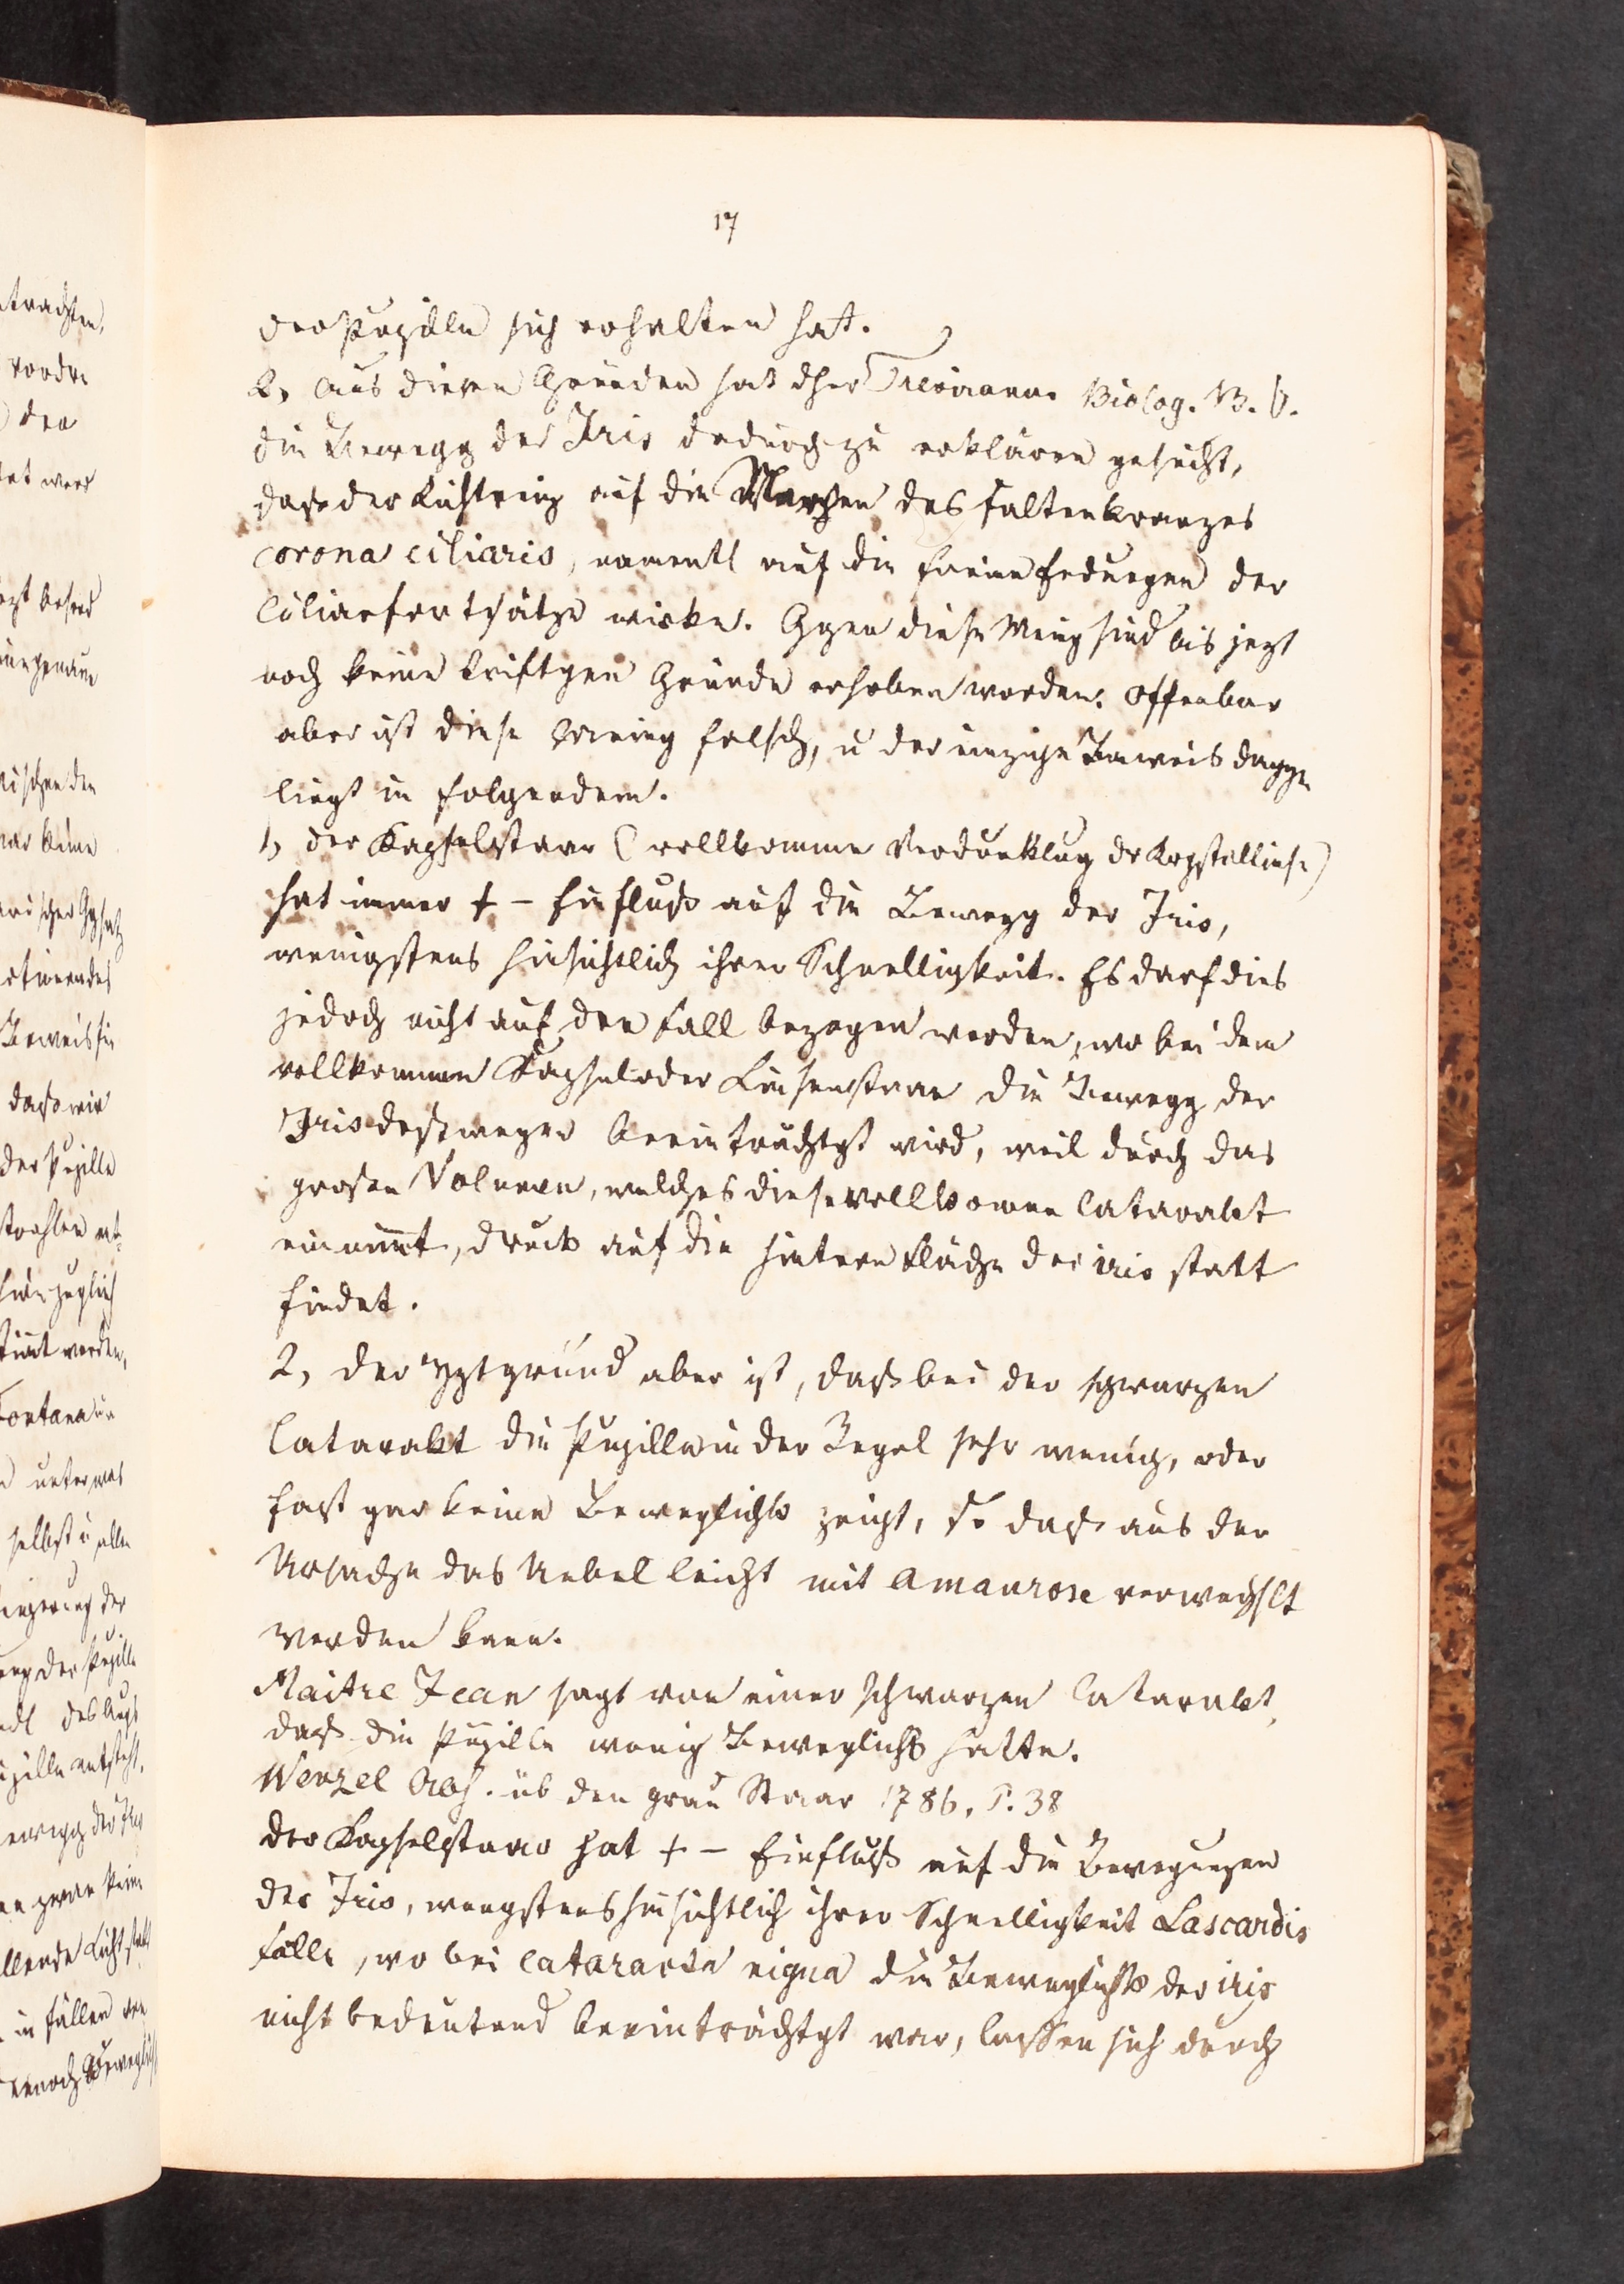 17
der Pupille sich erhalten hat.
2, Aus diesen Gründen hat dher Treviranus Biolog. B. V.
die Bewegg der Iris dadurch zu erklären gesucht,
daß der Lichtreiz auf die des Faltenkranzes
corona ciliaris, namentl auf die freien Endungen der
Ciliarfortsätze wirke. Ggen diese Meing sind bis jezt
noch keine triftgen Gründe erhoben worden. Offenbar
aber ist diese Meinig falsch, u der einzige Beweis daggn
liegt in folgendem.
1, der Kapselstaar (vollkomme Verdunklug dr Krystallinse)
hat immer + - Einfluß auf die Bewegg der Iris,
wenigstens hinsichtlich ihrer Schnelligkeit. Es darf dies
jedoch nicht auf den Fall bezogen werden, wo bei dem
vollkommen Kapsel oder Linsenstaar die Bewegg der
Iris deßwegen beeinträchtgt wird, weil durch das
großen Volumen, welches diese vollkomen Catarakt
einnimt, Druck auf die hintere Fläche der iris statt
findet.
2, der Hptgrund aber ist, daß bei der schwarzen
Catarakt die Pupille in der Regel sehr wenig, oder
fast gar keine Beweglichk zeigt, so daß aus der
Ursache das Uebel leicht mit Amaurose verwechslt
werden kann.
Maitre Jean sagt von einer schwarzen Catarakt,
daß die Pupille wenig Beweglichk hatte.
Wenzel Abh. üb den grau Staar 1786. P. 38
der Kapselstaar hat + - Einfluß auf die Bewegungen
der Iris, wengstens hinsichtlich ihrer Schnelligkeit Lascardis
Fälle, wo bei cataracta nigra die Beweglichk der iris
nicht bedeutend beeinträchtgt war, lassen sich durch